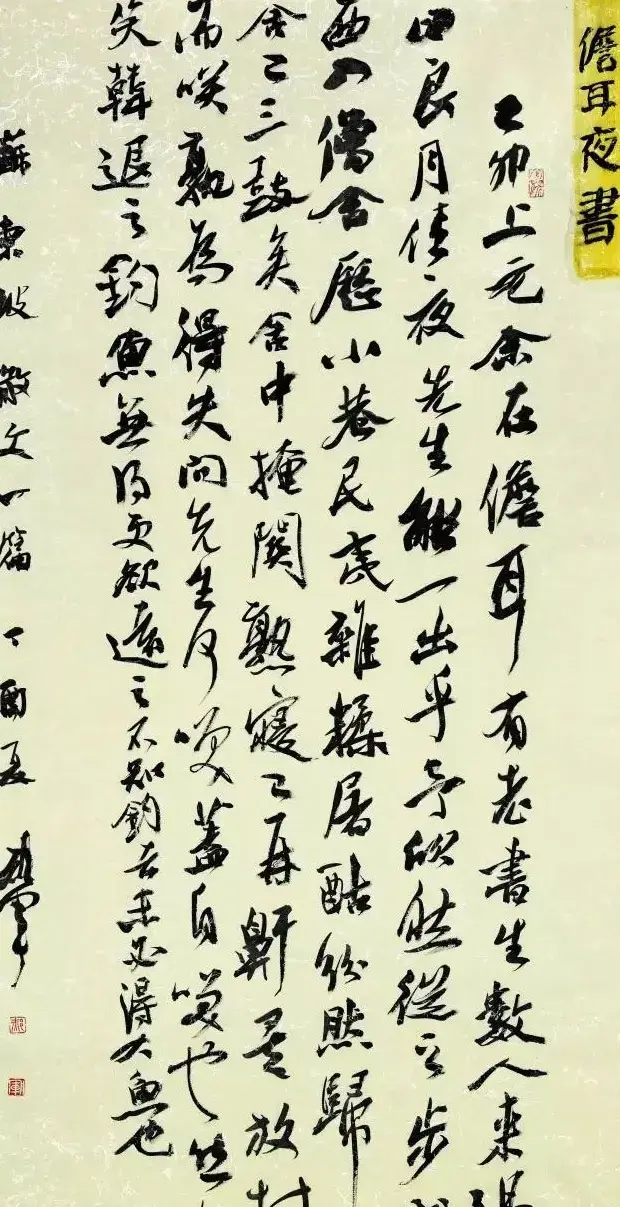 儋耳夜書
己卯上元余在儋耳有老書生數人來過
曰良月佳夜先生能一出乎予欣然從之步
西入僧舍歷小巷民夷雜糅屠酤紛然歸
舍已三鼓矣舍中掩關熟寢已再鼾矣放杖
而咲孰為得失問先生何咲蓋自咲也然
笑韓退之釣魚無得更欲遠之不知釣者未必得大魚也
蘇東坡散文一篇 丁酉夏 郝軍
郝
軍